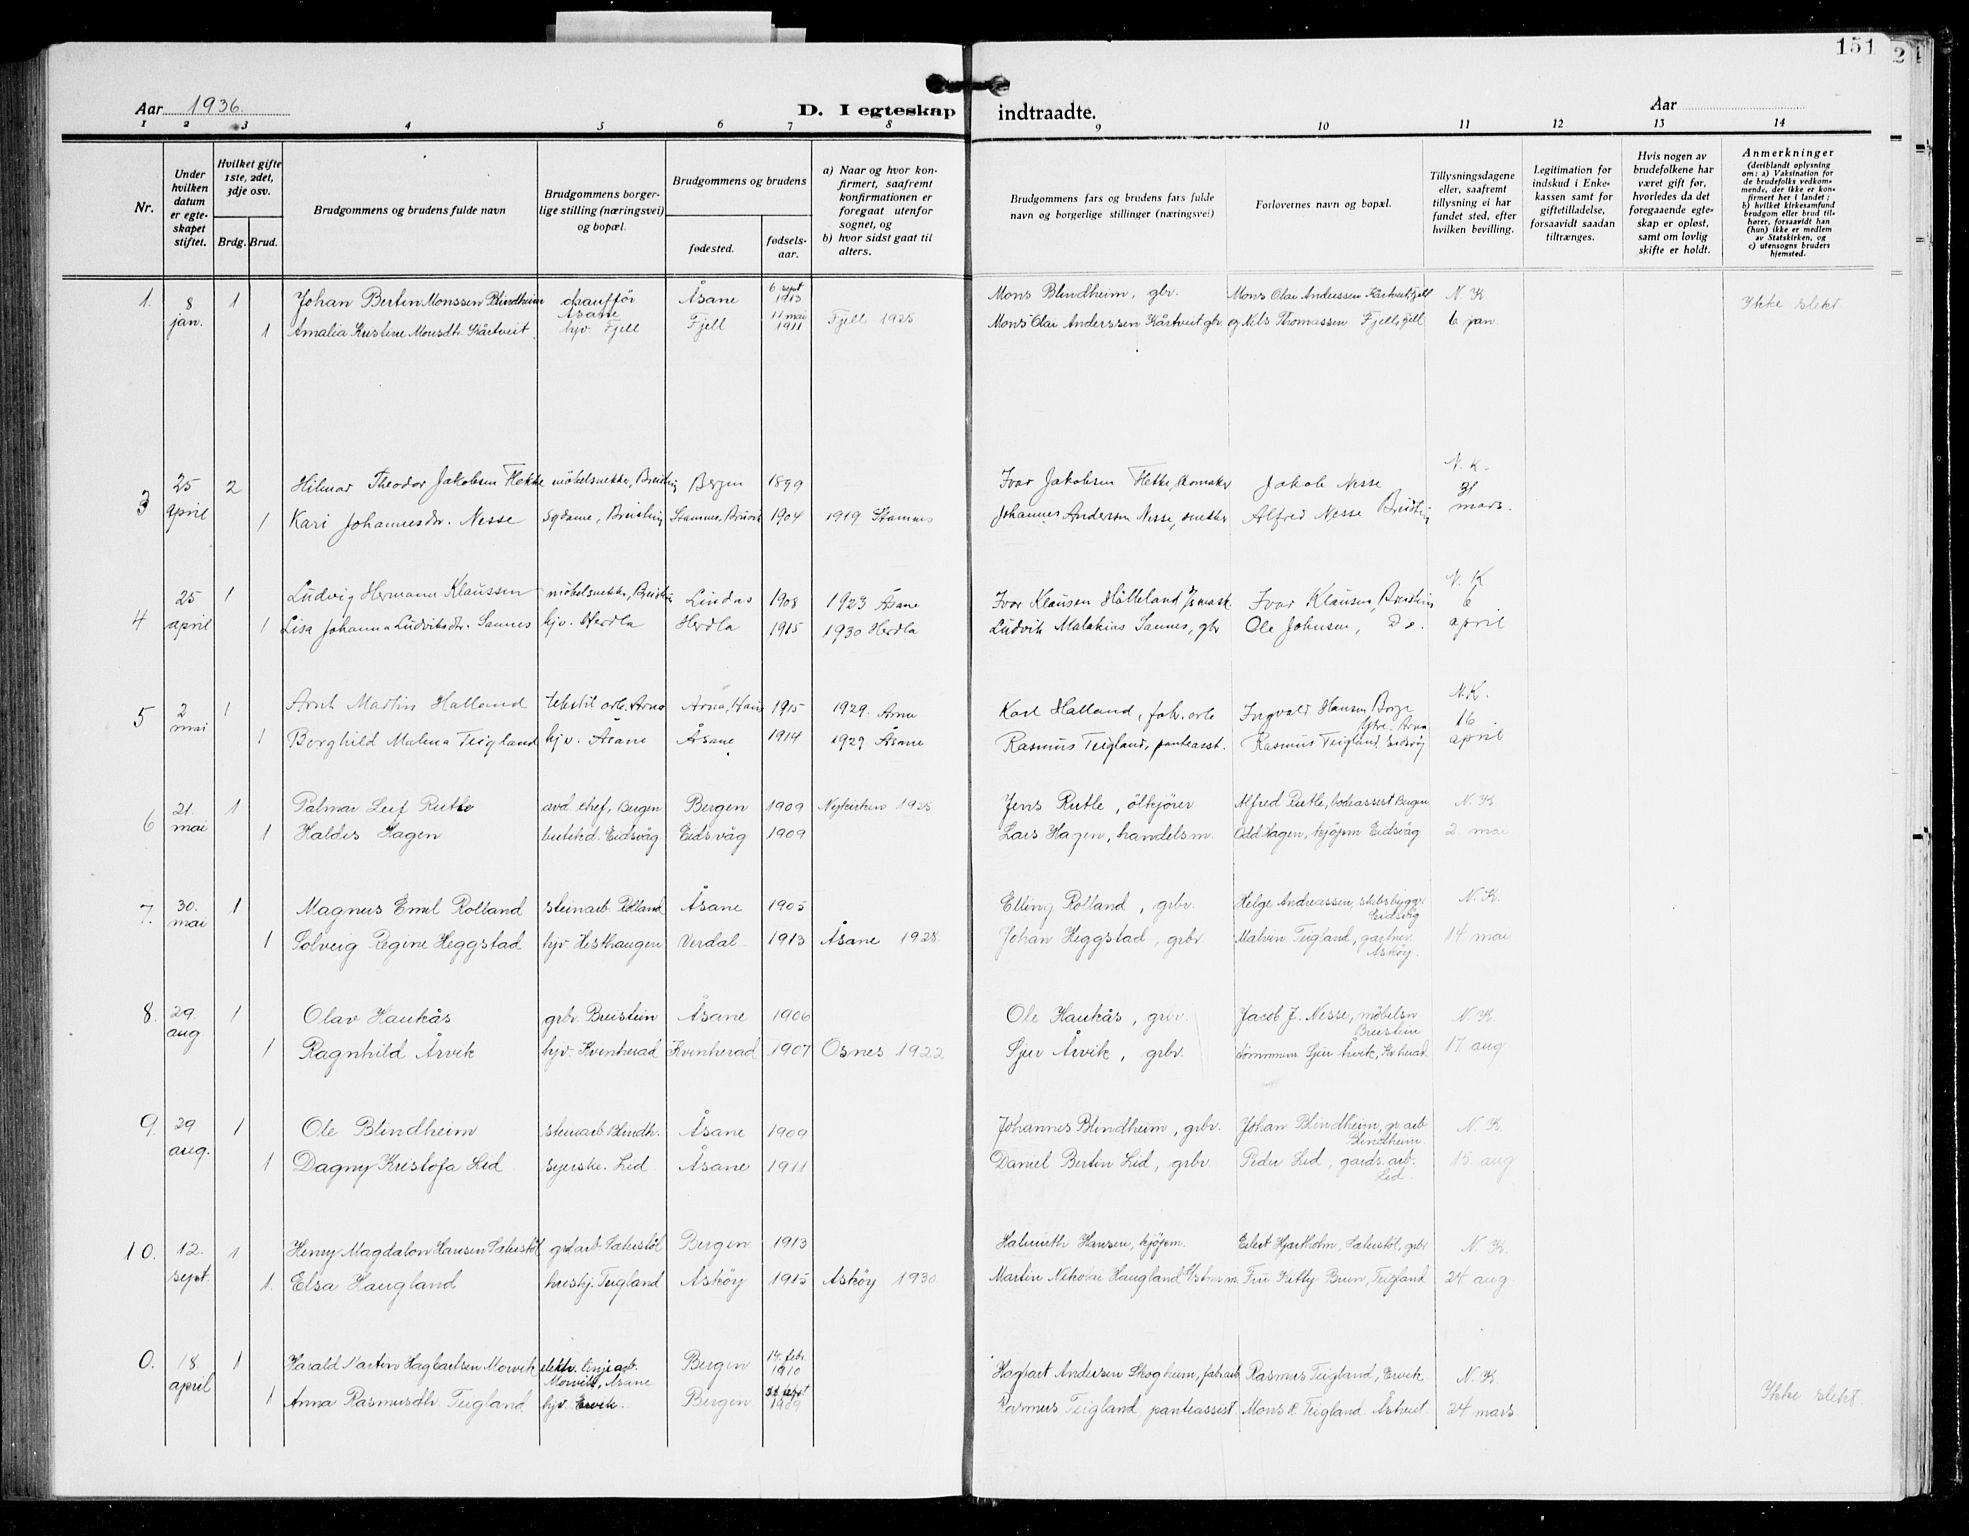 151
2
Aar 1936.
D. I egteskap indtraadte.
Aar
1 2 3 4 5 6 7 8 9 10 11 12 13 14
Nr.
Under hvilken datum er egteskapet stiftet.
Hvilket gifte 1ste, 2det, 3dje osv.
Brdg. Brud.
Brudgommens og brudens fulde navn
Brudgommens borgerlige stilling (næringsvei) og bopæl.
Brudgommens og brudens
fødested.
fødselsaar.
a) Naar og hvor konfirmert, saafremt konfirmationen er foregaat utenfor sognet, og
b) hvor sidst gaat til alters.
Brudgommens fars og brudens fars fulde navn og borgerlige stillinger (næringsvei)
Forlovernes navn og bopæl.
Tillysningsdagene eller, saafremt tillysning ei har fundet sted, efter hvilken bevilling.
Legitimation for indskud i Enkekassen samt for giftetilladelse, forsaavidt saadan tiltrænges.
Hvis nogen av brudefolkene har været gift før, hvorledes da det foregaaende egteskap er opløst, samt om lovlig skifte er holdt.
Anmerkninger
(deriblandt oplysning om: a) Vaksination for de brudefolks vedkommende, der ikke er konfirmert her i landet; b) hvilket kirkesamfund brudgom eller brud tilhører, forsaavidt han (hun) ikke er medlem av Statskirken, og c) utensogns bruders hjemsted.
1. 8 jan. 1 Johan Bertin Monssen Blindheim chauffør Åsane Åsane 6. sept 1913 Mons Blindheim, gbr. Mons Olai Anderssen Kårtveit Fjell N. K Ikke slekt.
1 Amalia Kristine Monsdtr. Kårtveit hjv. Fjell Fjell 11 mai 1911 Fjell 1925 Mons Olai Anderssen Kårtveit gbr og Nils Thomassen Fjell, Fjell 6 jan.
3 25 april 2 Hilmar Theodor Jakobsen Flekke möbelsnekker, Breistein Bergen 1899 Ivar Jakobsen Flekke, skomaker Jakob Nesse N. K. 31 mars.
1 Kari Johannesdtr. Nesse sydame, Breistein Stamnes, Bruvik 1904 1919 Stamnes Johannes Andersen Nesse, snekker Alfred Nesse Breistein
4 25 april 1 Ludvig Hermann Klaussen möbelsnekker, Breistein Lindås 1908 1923 Åsane Ivar Klausen Hölleland Ivar Klausen, Breistein N. K 6 april
1 Lisa Johanna Ludviksdtr. Sannes hjv. Herdla Herdla 1915 1930 Herdla Ludvik Malakias Sannes, gbr Ole Johnsen, Do.
5 2 mai 1 Arnt Martin Halland tekstil arb. Arna Arna, Haus 1915 1929. Arna Karl Halland, fabr. arb Ingvald Hansen Borge Ytre-Arna N. K. 16 april
1 Borghild Malena Teigland hjv. Åsane Åsane 1914 1929 Åsane Rasmus Teigland, panteasst. Rasmus Teigland Eidsvåg
6 21. mai 1 Palmar Leif Rutle avd chef, Bergen Bergen 1909 Nykirken 1925 Jens Rutle, ölkjörer Alfred Rutle, bodeassist Bergen N. K
1 Haldis Hagen butikd. Eidsvåg Eidsvåg 1909 Lars Hagen, handelsm. Odd Hagen, kjöpm Eidsvåg 2. mai
7. 30. mai 1 Magnus Emil Rolland steinarb. Rolland Åsane 1905 Elling Rolland, grbr. Helge Andreassen, skibsbygger Eidsvåg N. K.
1 Solveig Regine Heggstad hjv. Hesthaugen Verdal 1913 Åsane 1928. Johan Heggstad, grbr Malvin Teigland, gartner. Asköy. 14 mai
8. 29. aug 1 Olav Haukås grbr. Breistein Åsane 1906 Ole Haukås, grbr. Jacob J. Nesse, möbelsn Breistein N. K.
1 Ragnhild Årvik hjv. Kvinherad Kvinherad 1907 Osnes 1922 Sjur Årvik, grbr. Sjur Årvik, Kv.herad. 17 aug
9. 29 aug. 1 Ole Blindheim steinarb Blindh. Åsane 1909 Johannes Blindheim, grbr. Johan Blindheim, gr arb Blindheim. N. K.
1 Dagny Kristofa Lid syerske. Lid Åsane 1911 Daniel Bertin Lid, grbr Peder Lid, gards. arb. Lid. 15. aug
10. 12. sept. 1 Henry Magdalon Hansen Sæterstöl grd arb Sæterstöl Bergen 1913 Halmuth Hansen, kjöpm. Eilert Hjartholm, Sæterstöl, grbr N. K.
1. Elsa Haugland hushj. Teigland Asköy 1915 Asköy 1930. Martin Nikolai Haugland Fru Kitty Brun, Teigland 24 aug
0. 18. april 1 Harald Martin Hagbartsen Morvik elektr. linjearb. Morvik, Åsane Bergen 14. febr. 1910 Hagbart Andersen Skogheim, fabr.arb Rasmus Teigland, Ervik N. K. Ikke slekt.
1 Anna Rasmusdtr. Teigland hjv. Ervik. Bergen sept 1909 Rasmus Teigland, panteassist. Mons R. Teigland. Åstveit 24 mars